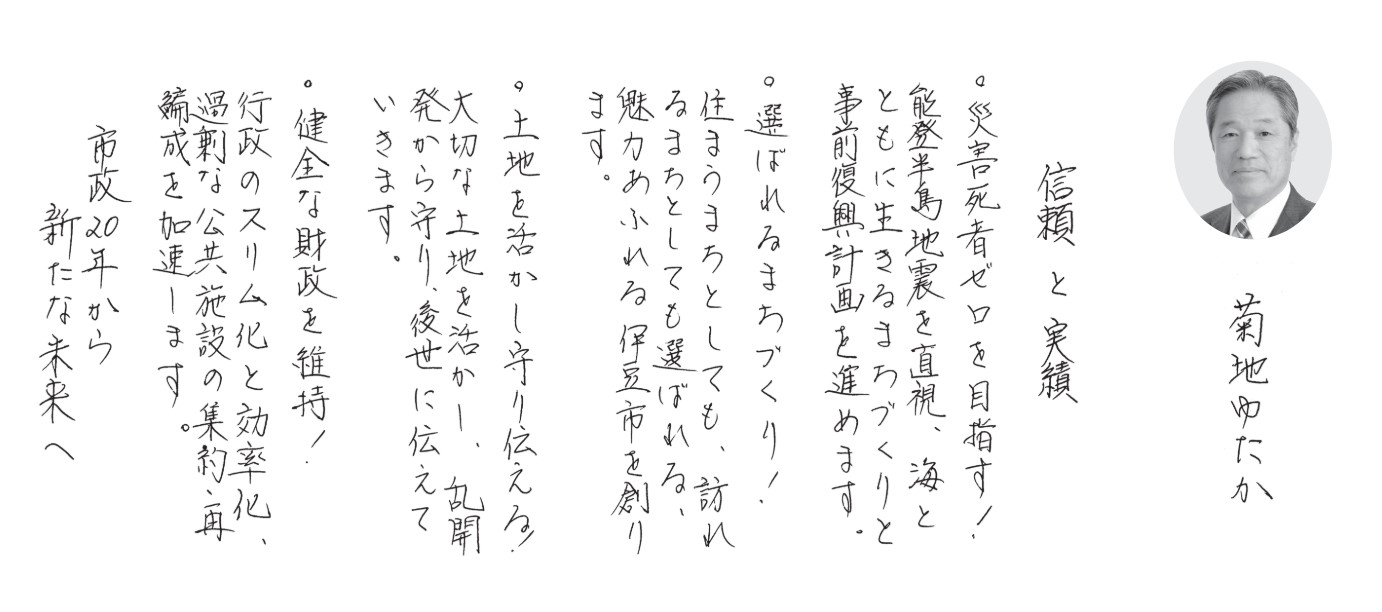 菊地ゆたか
信頼と実績
。災害死者ゼロを目指す！
能登半島地震を直視、海と
ともに生きるまちづくりと
事前復興計画を進めます。
。選ばれるまちづくり！
住まうまちとしても、訪れ
るまちとしても選ばれる、
魅力あふれる伊豆市を創り
ます。
。土地を活かし守り伝える！
大切な土地を活かし、乱開
発から守り、後世に伝えて
いきます。
。健全な財政を維持！
行政のスリム化と効率化、
過剰な公共施設の集約・再
編成を加速します。
市政20年から
新たな未来へ